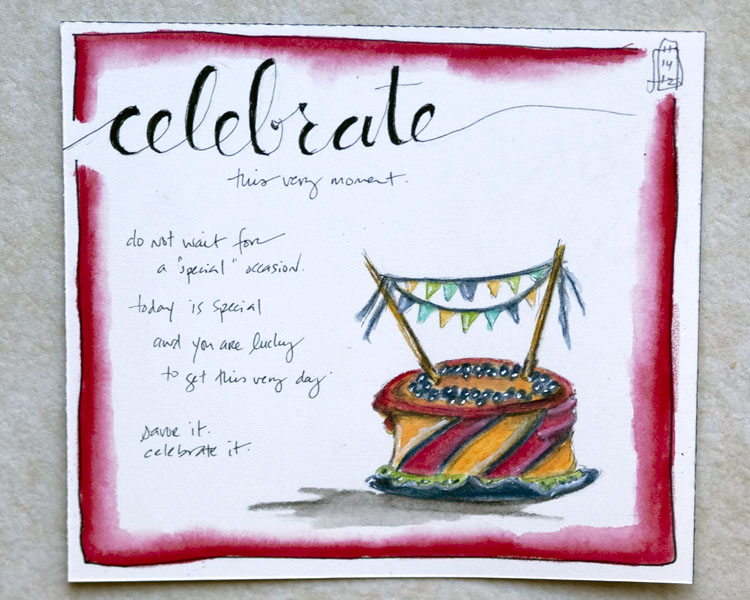 celebrate
this very moment.
do not wait for
a "special" occasion.
today is special
and you are lucky
to get this very day.
savor it.
celebrate it.
11
14
12